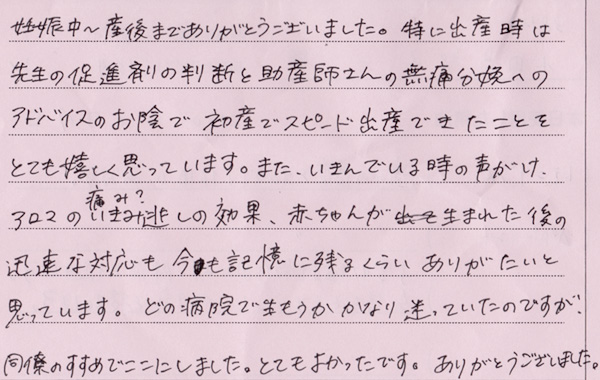 妊娠中〜産後までありがとうございました。特に出産時は
先生の促進剤の判断と助産師さんの無痛分娩への
アドバイスのお陰で初産でスピード出産できたことを
とても嬉しく思っています。また、いきんでいる時の声がけ、
痛み?
アロマのいきみ逃しの効果、赤ちゃんが出て生まれた後の
迅速な対応も今も記憶に残るくらいありがたいと
思っています。どの病院で生もうかかなり迷っていたのですが、
同僚のすすめでここにしました。とてもよかったです。ありがとうございました。